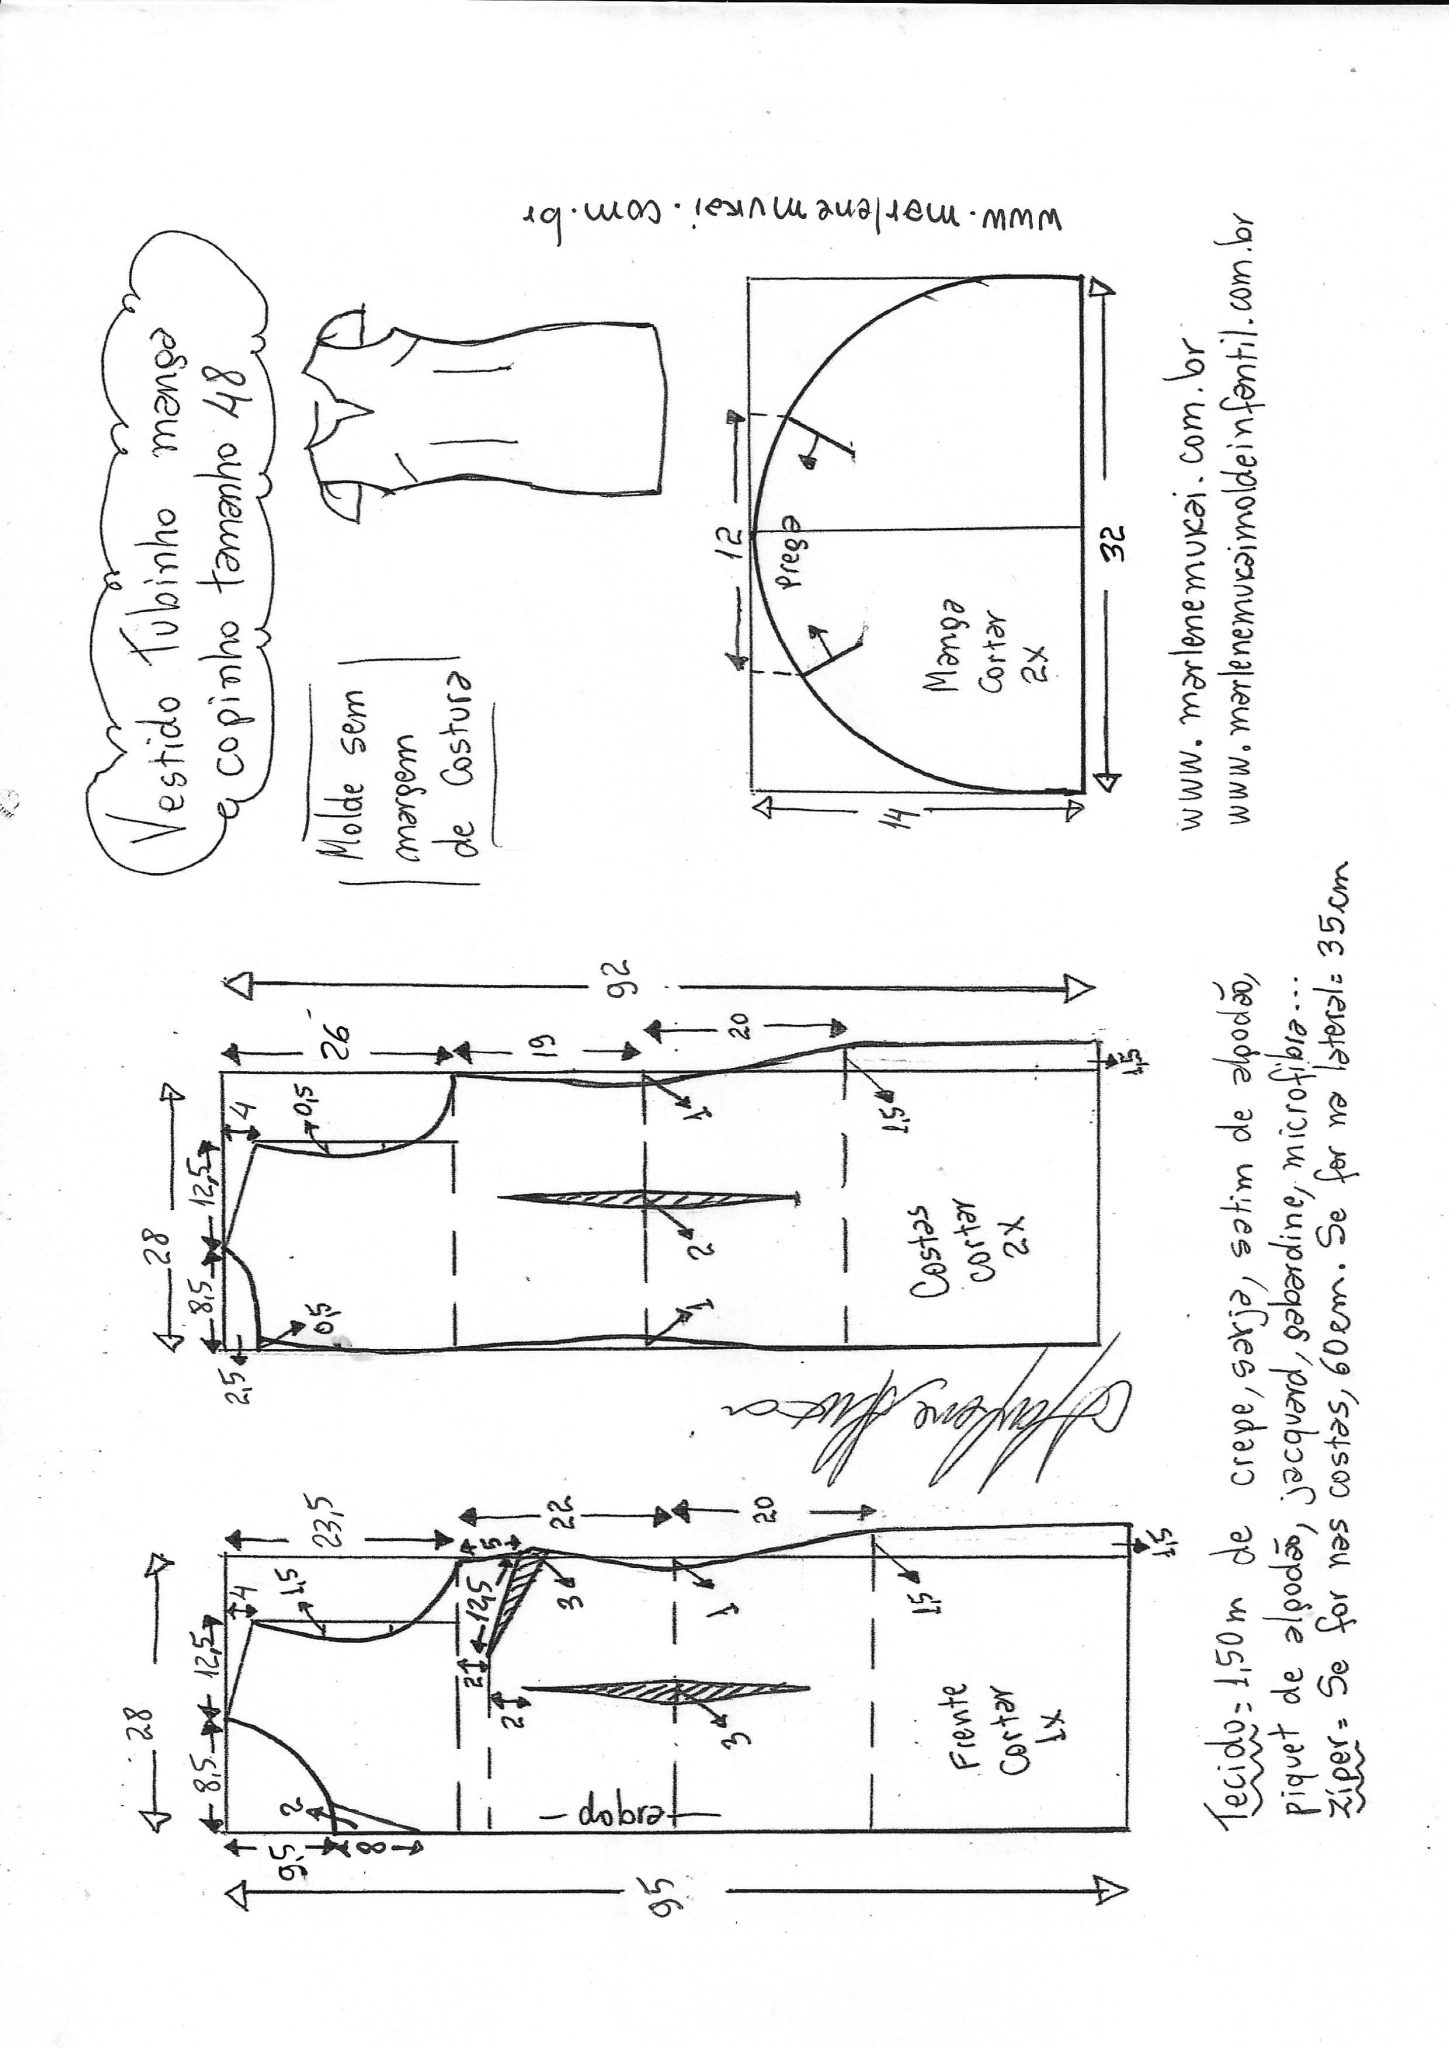 Vestido Tubinho manga
copinho tamanho 48
Molde sem
margem
de Costura
www.marlenemukai.com.br
28
8,5
12,5
4
9,5
2
8
1,5
23,5
5
12,5
2
2
3
22
1
20
3
1,5
1,5
95
dobra
Frente
Cortar
1x
28
8,5
12,5
4
2,5
0,5
0,5
26
19
20
1
2
1
1,5
1,5
92
Costas
cortar
2x
12
Prega
14
32
Manga
Cortar
2x
www.marlenemukai.com.br
www.marlenemukaimoldeinfantil.com.br
Tecido= 1,50m de crepe, sarja, setim de algodão,
piquet de algodão, jacquard, gabardine, microfibra...
Zíper= Se for nas costas, 60cm. Se for na lateral= 35cm